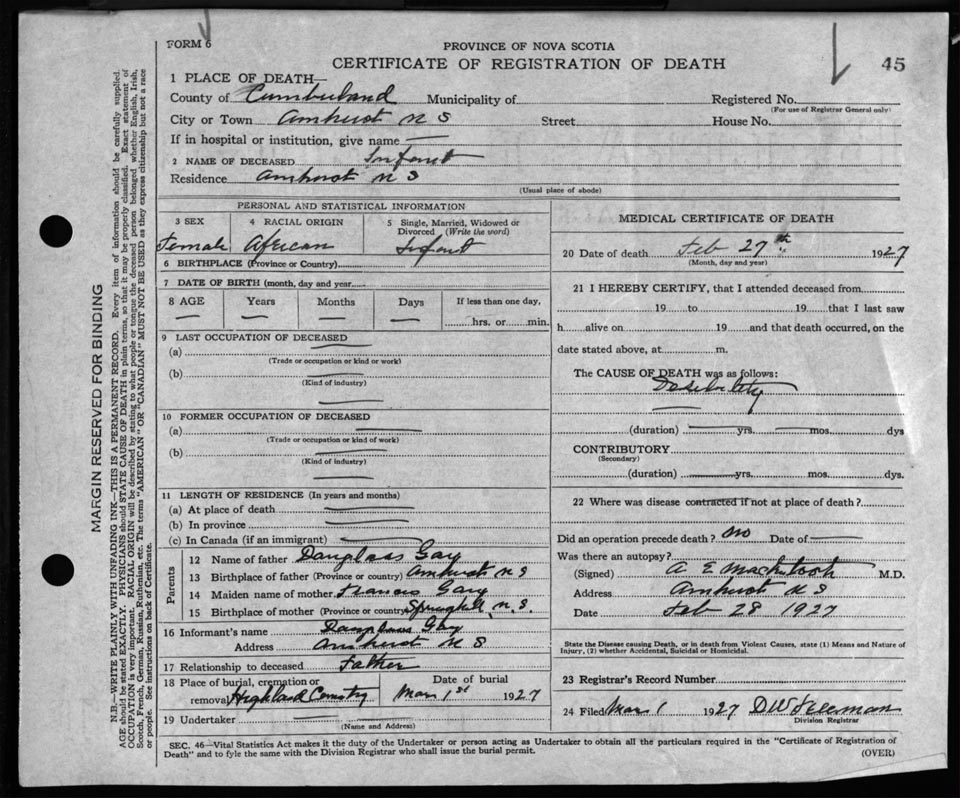 FORM 6
PROVINCE OF NOVA SCOTIA
CERTIFICATE OF REGISTRATION OF DEATH 45
1 PLACE OF DEATH—
County of Cumberland Municipality of Registered No.
(For use of Registrar General only)
City or Town Amherst N S Street House No.
If in hospital or institution, give name
2 NAME OF DECEASED Infant
Residence Amherst N S
(Usual place of abode)
PERSONAL AND STATISTICAL INFORMATION
3 SEX 4 RACIAL ORIGIN 5 Single, Married, Widowed or Divorced (Write the word)
Female African Infant
6 BIRTHPLACE (Province or Country)
7 DATE OF BIRTH (month, day and year)
8 AGE Years Months Days If less than one day,
— — — — hrs. or min.
9 LAST OCCUPATION OF DECEASED
(a)
(Trade or occupation or kind or work)
(b)
(Kind of industry)
10 FORMER OCCUPATION OF DECEASED
(a)
(Trade or occupation or kind of work)
(b)
(Kind of industry)
11 LENGTH OF RESIDENCE (In years and months)
(a) At place of death
(b) In province
(c) In Canada (if an immigrant)
Parents
12 Name of father Douglass Gay
13 Birthplace of father (Province or country) Amherst N S
14 Maiden name of mother Francis Gary
15 Birthplace of mother (Province or country) Springhill N.S.
16 Informant's name Douglass Gay
Address Amherst N S
17 Relationship to deceased Father
18 Place of burial, cremation or removal Highland Cemetry Date of burial Mar 1st 1927
19 Undertaker
(Name and Address)
MEDICAL CERTIFICATE OF DEATH
20 Date of death Feb 27th 1927
(Month, day and year)
21 I HEREBY CERTIFY, that I attended deceased from
19 to 19 that I last saw
h alive on 19 and that death occurred, on the
date stated above, at m.
The CAUSE OF DEATH was as follows:
Debility
(duration) yrs. mos. dys
CONTRIBUTORY
(Secondary)
(duration) yrs. mos. dys.
22 Where was disease contracted if not at place of death?
Did an operation precede death? No Date of
Was there an autopsy?
(Signed) A E Mackintosh M.D.
Address Amherst N S
Date Feb 28 1927
State the Disease causing Death, or in death from Violent Causes, state (1) Means and Nature of
Injury, (2) whether Accidental, Suicidal or Homicidal.
23 Registrar's Record Number
24 Filed Mar 1 1927 D W Freeman
Division Registrar
SEC. 46—Vital Statistics Act makes it the duty of the Undertaker or person acting as Undertaker to obtain all the particulars required in the "Certificate of Registration of
Death" and to fyle the same with the Division Registrar who shall issue the burial permit. (OVER)
MARGIN RESERVED FOR BINDING
N.B.—WRITE PLAINLY WITH UNFADING INK—THIS IS A PERMANENT RECORD. Every item of information should be carefully supplied.
AGE should be stated EXACTLY. PHYSICIANS should STATE CAUSE OF DEATH in plain terms, so that it may be properly classified. Exact statement of
OCCUPATION is very important. RACIAL ORIGIN will be described by stating to what people or tongue the deceased person belonged, whether English, Irish,
Scotch, French, German, Russian, Ruthenian, etc. The terms "AMERICAN" OR "CANADIAN" MUST NOT BE USED as they express citizenship but not a race
or people. See instructions on back of Certificate.